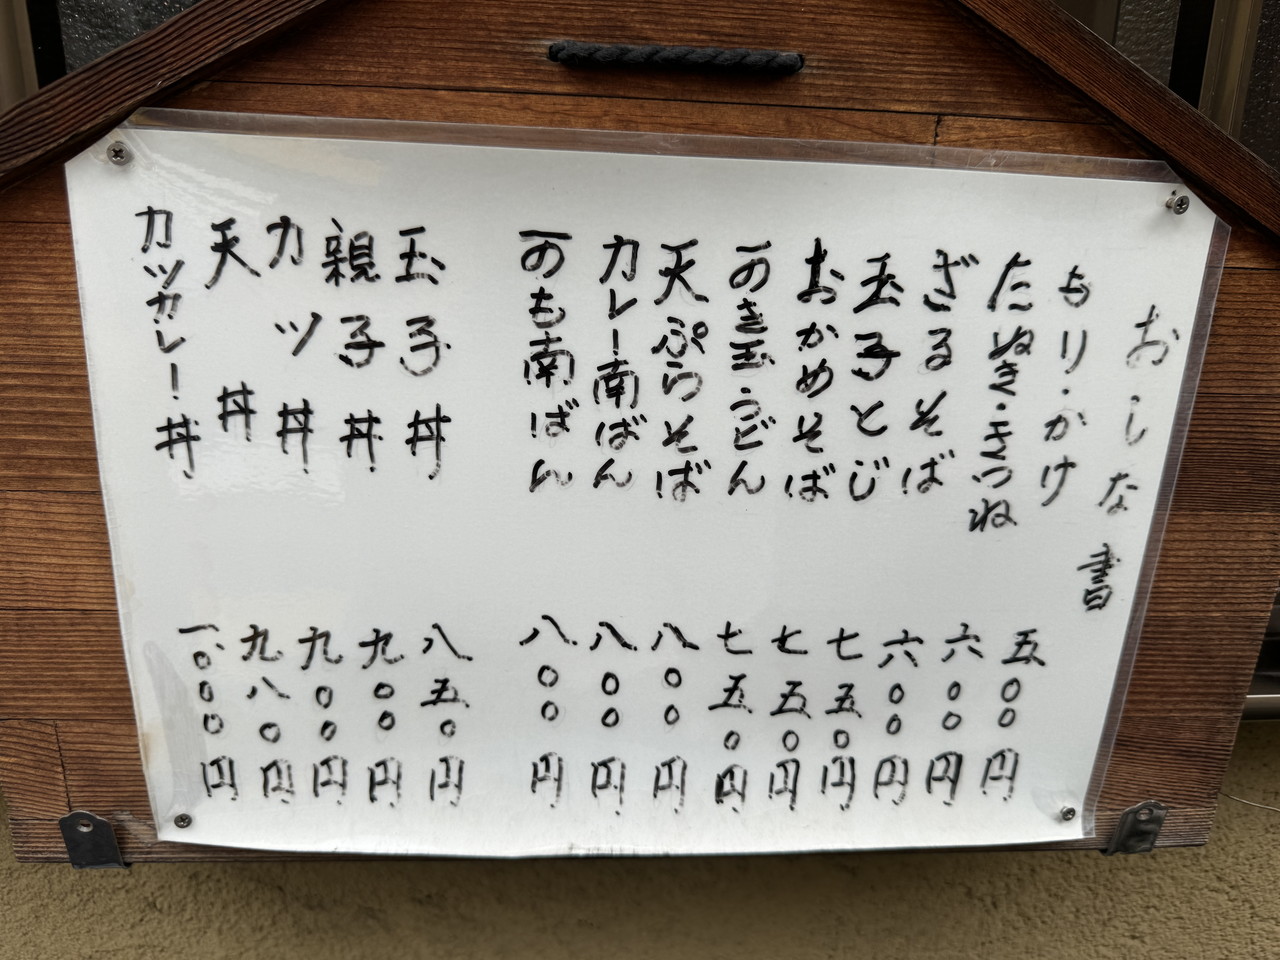 おしな書
もり・かけ 五〇〇円
たぬき・きつね 六〇〇円
ざるそば 六〇〇円
玉子とじ 七五〇円
おかめそば 七五〇円
可き玉うどん 七五〇円
天ぷらそば 八〇〇円
カレー南ばん 八〇〇円
可も南ばん 八〇〇円
玉子丼 八五〇円
親子丼 九〇〇円
カツ丼 九〇〇円
天丼 九八〇円
カツカレー丼 一、〇〇〇円